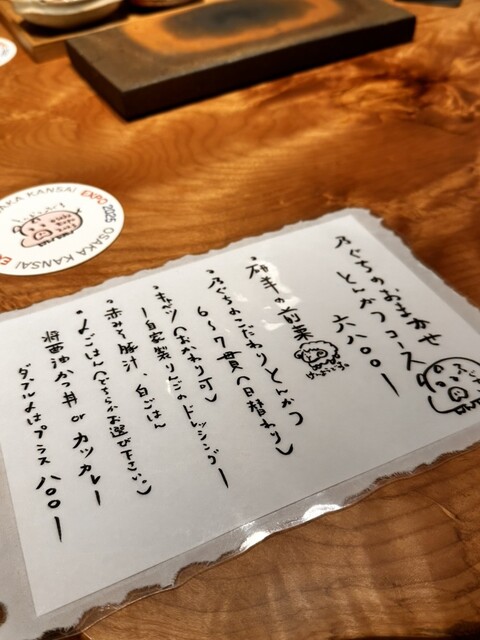 乃ぐちのおまかせ
とんかつコース
六八〇〇ー
・羊の前菜
・乃ぐちのこだわりとんかつ
6〜7貫（日替わり）
・キャベツ（おかわり可）
ー自家製りんごのドレッシングー
・赤みそ豚汁、白ごはん
・〆ごはん（どちらかお選び下さい）
醤油かつ丼 or カツカレー
ダブル〆はプラス 八〇〇ー
OSAKA KANSAI EXPO 2025 OSAKA KANSAI